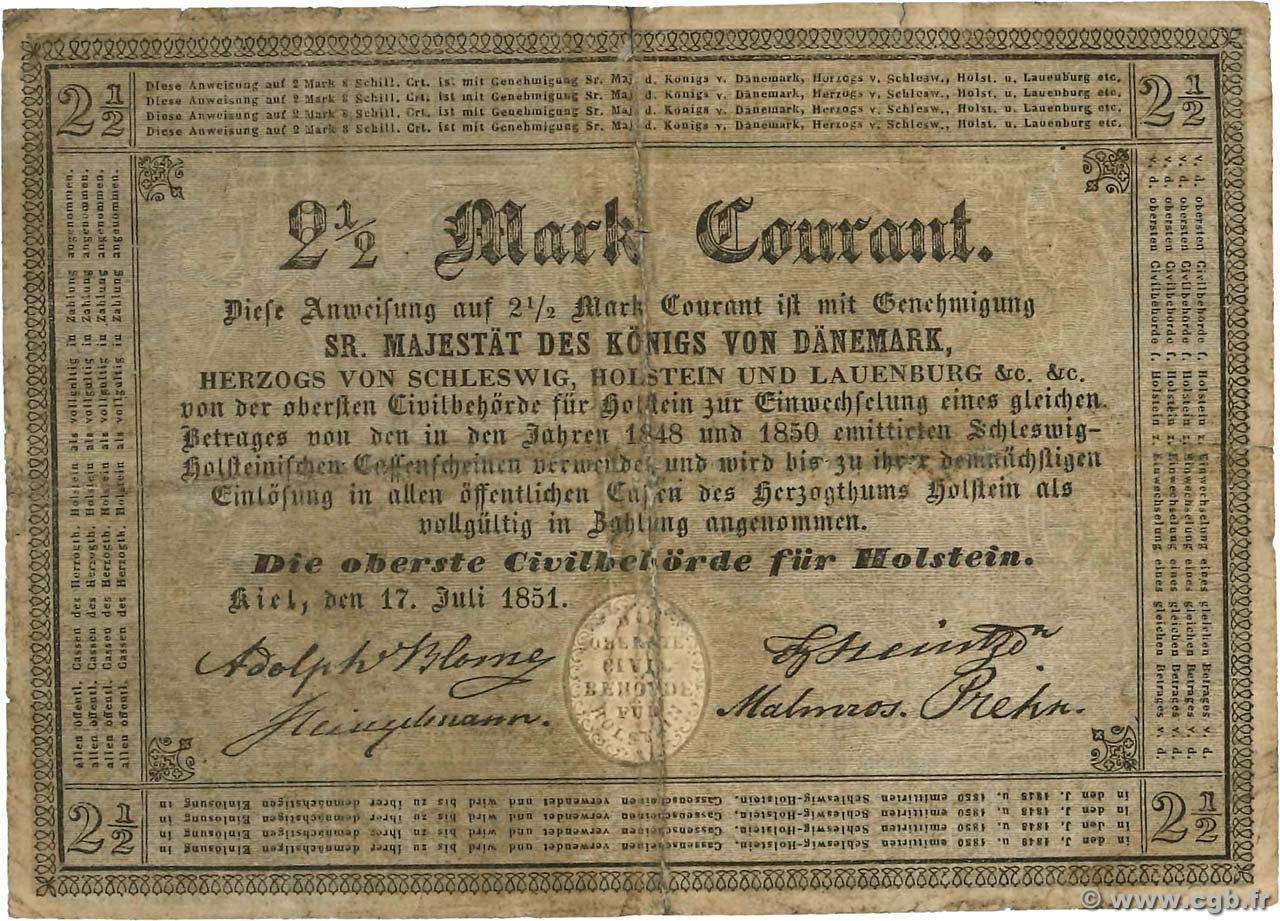 2 1/2
Diese Anweisung auf 2 Mark 8 Schill. Crt. ist mit Genehmigung Sr. Maj. d. Königs v. Dänemark, Herzogs v. Schlesw., Holst. u. Lauenburg etc.
Diese Anweisung auf 2 Mark 8 Schill. Crt. ist mit Genehmigung Sr. Maj. d. Königs v. Dänemark, Herzogs v. Schlesw., Holst. u. Lauenburg etc.
Diese Anweisung auf 2 Mark 8 Schill. Crt. ist mit Genehmigung Sr. Maj. d. Königs v. Dänemark, Herzogs v. Schlesw., Holst. u. Lauenburg etc.
Diese Anweisung auf 2 Mark 8 Schill. Crt. ist mit Genehmigung Sr. Maj. d. Königs v. Dänemark, Herzogs v. Schlesw., Holst. u. Lauenburg etc.
2 1/2
v. d. obersten Civilbehörde f. Holstein z. Einwechselung eines gleichen Betrages v. d.
v. d. obersten Civilbehörde f. Holstein z. Einwechselung eines gleichen Betrages v. d.
v. d. obersten Civilbehörde f. Holstein z. Einwechselung eines gleichen Betrages v. d.
v. d. obersten Civilbehörde f. Holstein z. Einwechselung eines gleichen Betrages v. d.
2½ Mark Courant.
Diese Anweisung auf 2½ Mark Courant ist mit Genehmigung
SR. MAJESTÄT DES KÖNIGS VON DÄNEMARK,
HERZOGS VON SCHLESWIG, HOLSTEIN UND LAUENBURG &c. &c.
von der obersten Civilbehörde für Holstein zur Einwechselung eines gleichen
Betrages von den in den Jahren 1848 und 1850 emittirten Schleswig-
Holsteinischen Cassenscheinen verwendet und wird bis zu ihrer demnächstigen
Einlösung in allen öffentlichen Cassen des Herzogthums Holstein als
vollgültig in Zahlung angenommen.
Die oberste Civilbehörde für Holstein.
Kiel, den 17. Juli 1851.
Adolph Blome
Heintze
Heingelmann.
Malmros. Prehn.
DIE
OBERSTE
CIVIL
BEHÖRDE
FÜR
HOLSTEIN
2 1/2
in den J. 1848 u. 1850 emittirten Schleswig-Holstein. Cassenscheinen verwendet und wird bis zu ihrer demnächstigen Einlösung in
in den J. 1848 u. 1850 emittirten Schleswig-Holstein. Cassenscheinen verwendet und wird bis zu ihrer demnächstigen Einlösung in
in den J. 1848 u. 1850 emittirten Schleswig-Holstein. Cassenscheinen verwendet und wird bis zu ihrer demnächstigen Einlösung in
in den J. 1848 u. 1850 emittirten Schleswig-Holstein. Cassenscheinen verwendet und wird bis zu ihrer demnächstigen Einlösung in
2 1/2
allen öffentl. Cassen des Herzogth. Holstein als vollgültig in Zahlung angenommen.
allen öffentl. Cassen des Herzogth. Holstein als vollgültig in Zahlung angenommen.
allen öffentl. Cassen des Herzogth. Holstein als vollgültig in Zahlung angenommen.
allen öffentl. Cassen des Herzogth. Holstein als vollgültig in Zahlung angenommen.
© www.cgb.fr